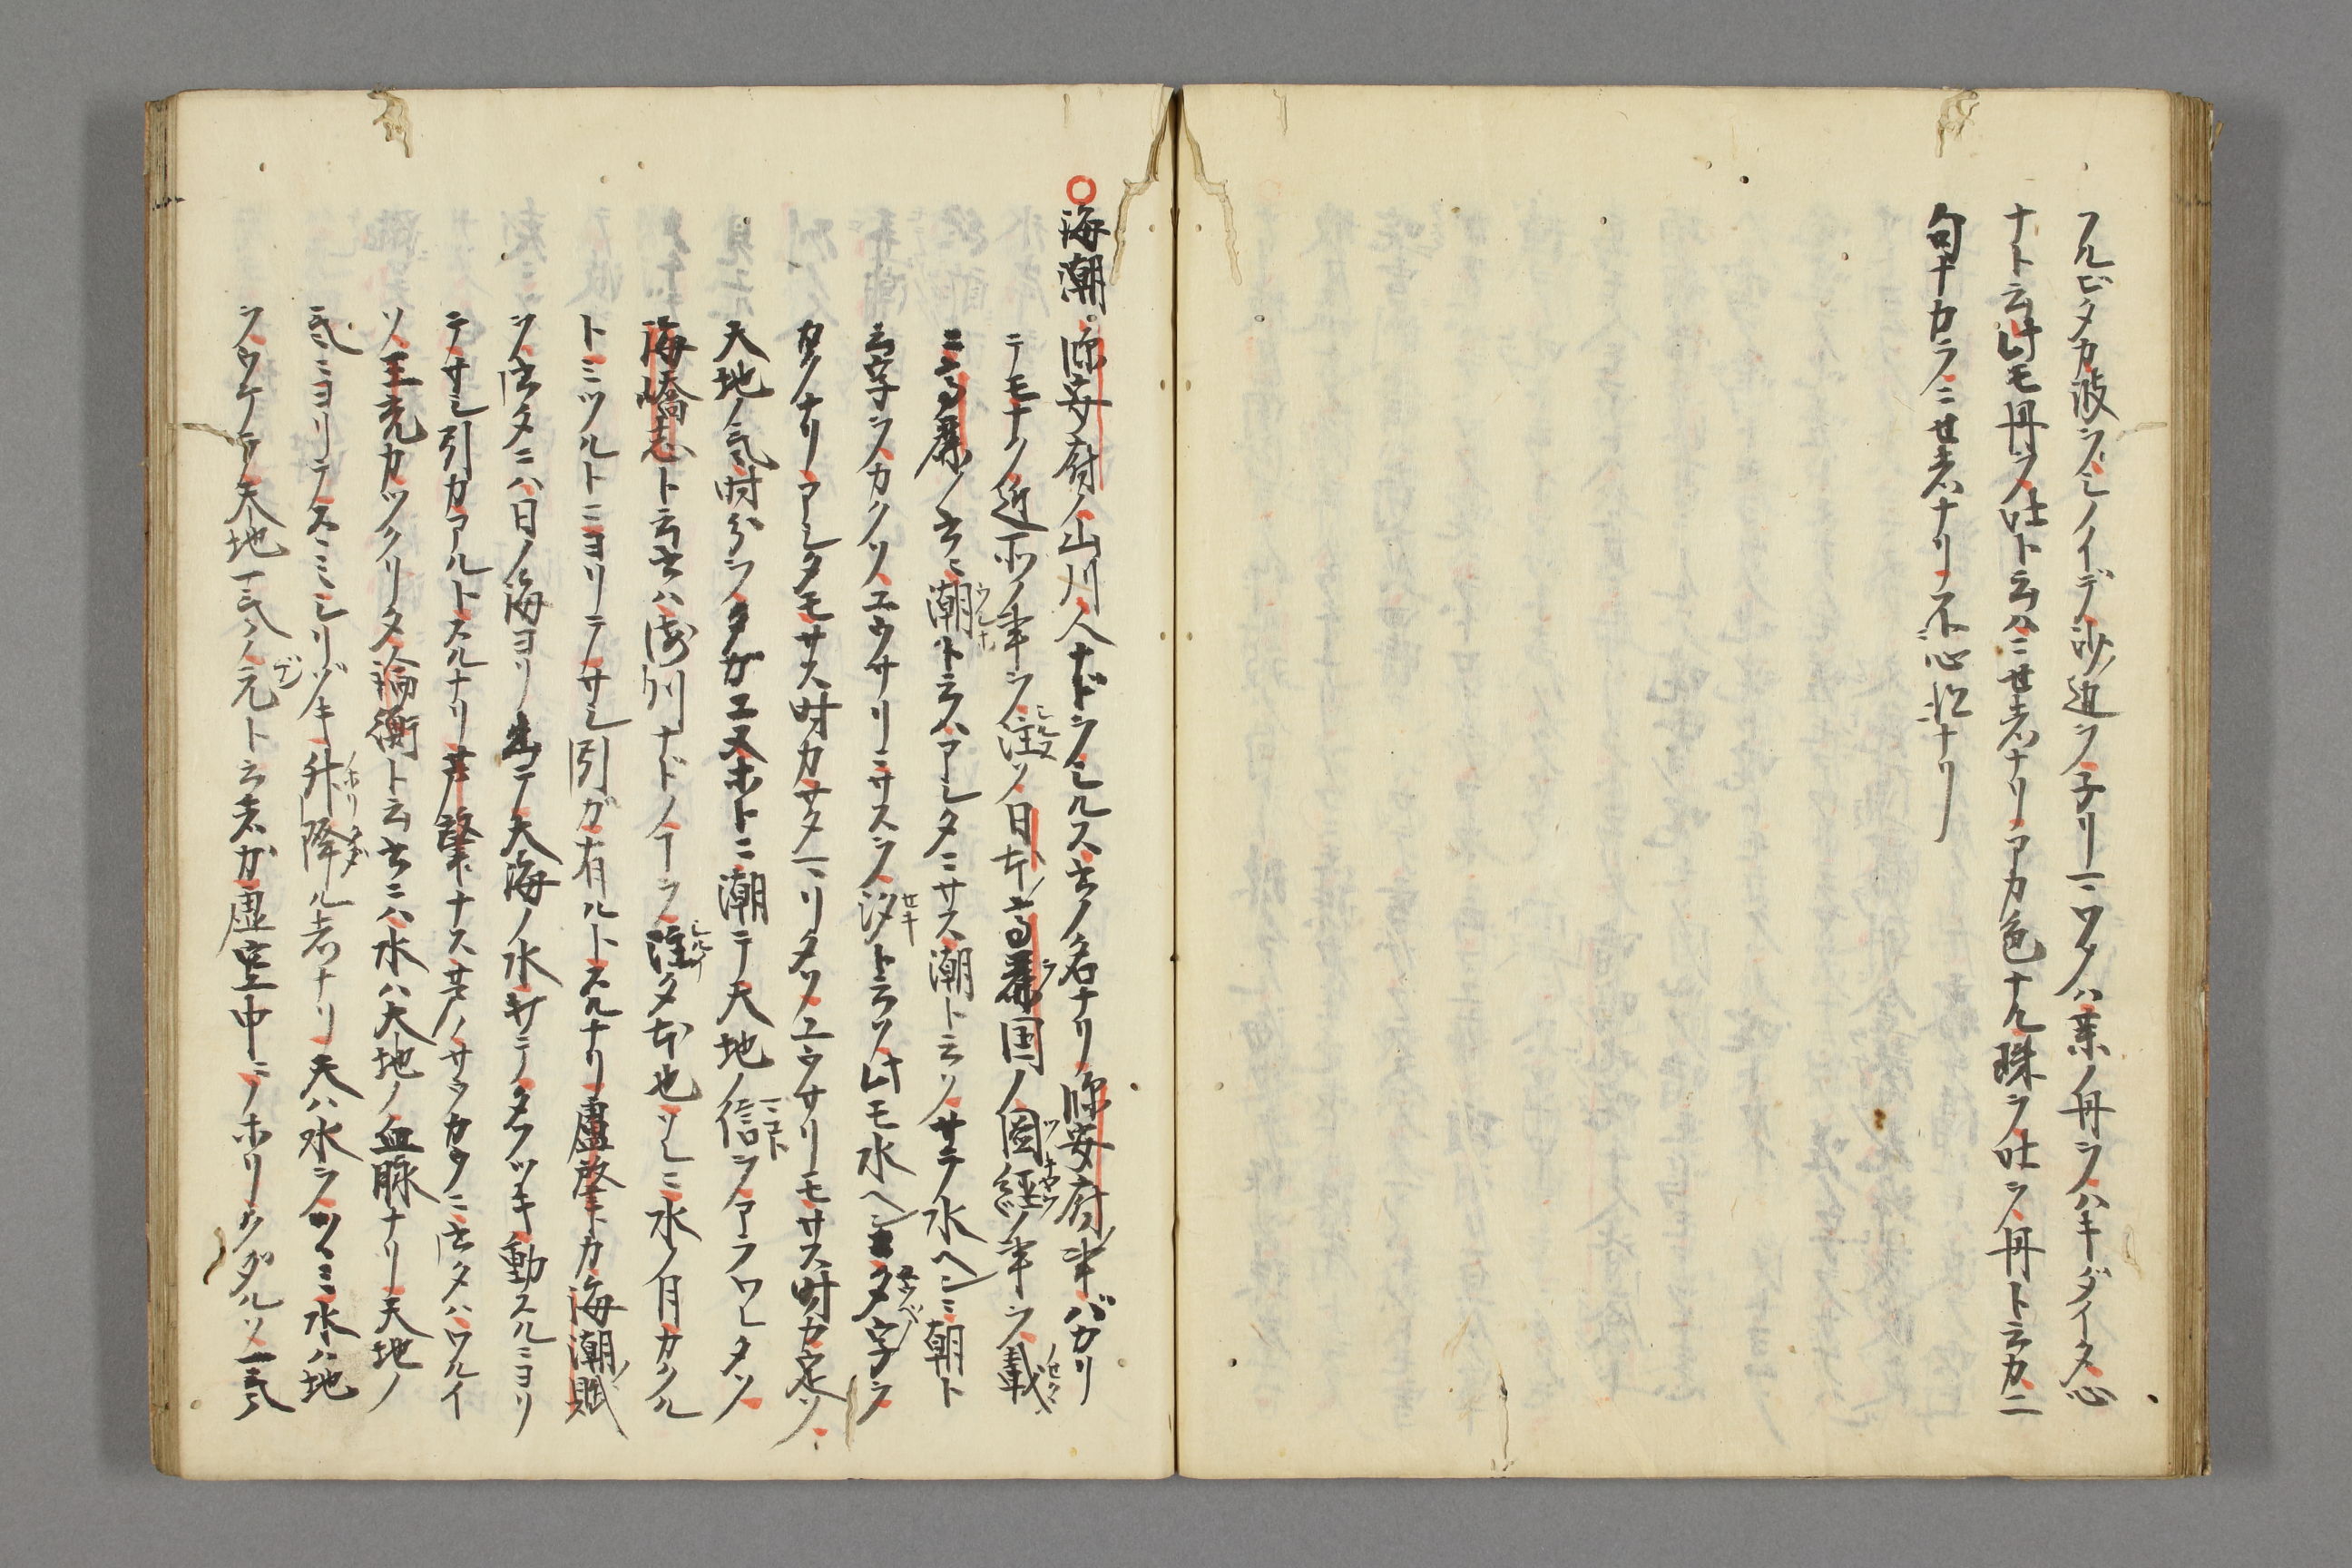 フルビタカ波ヲシノイデ砂ノ辺ヲ子リマワタハ薬ノ丹ヲハキダイタ心
ナト云此モ丹ヲ吐ト云ハニせ者ナリアカ色ナル珠ヲ吐ヲ丹ト云カ二
句ナカラニせ者ナリ不心非ナリ
○海潮臨安府ノ山川人ナドヲシルス書ノ名ナリ臨安府ノ事バカリ
テモナク近所ノ事ヲ注ソ日本ノ高麗国ノ図経ノ事ヲ載
ニ高麗ノ書ニ潮ト云ハアシタニサス潮ト云ソサテ水ヘンニ朝ト
云字ヲカクソユウサリニサスヲ汐ト云ソ此モ水ヘンニ夕字ヲ
カクナリアシタモサス時カサタマリタソユウサリモサス時カ定ソ
天地ノ気時分ヲタガエヌホトニ潮テ天地ノ信ヲアラワシタソ
海嶠志ト云書ハ浙川ナドノ事ヲ注タ本也ソレニ水ノ月カクル
トミツルトニヨリテサシ引ガ有ルトスルナリ盧肇カ海潮ノ賦
ヲ書タニハ日ノ海ヨリ出テ大海ノ水ガテタフツキ動スルニヨリ
テサシ引カアルトスルナリ芦肇ナス芦ノサウカクニ書タハワルイ
ソ王充カツクリタ論衡ト云書ニハ水ハ天地ノ血脉ナリ天地ノ
気ニヨリテスヽミシリゾキ升降ル者ナリ天ハ水ヲツヽミ水ハ地
ヲウケテ天地一気ノ元ト云者ガ虚空中ニノホリクダルソ一気